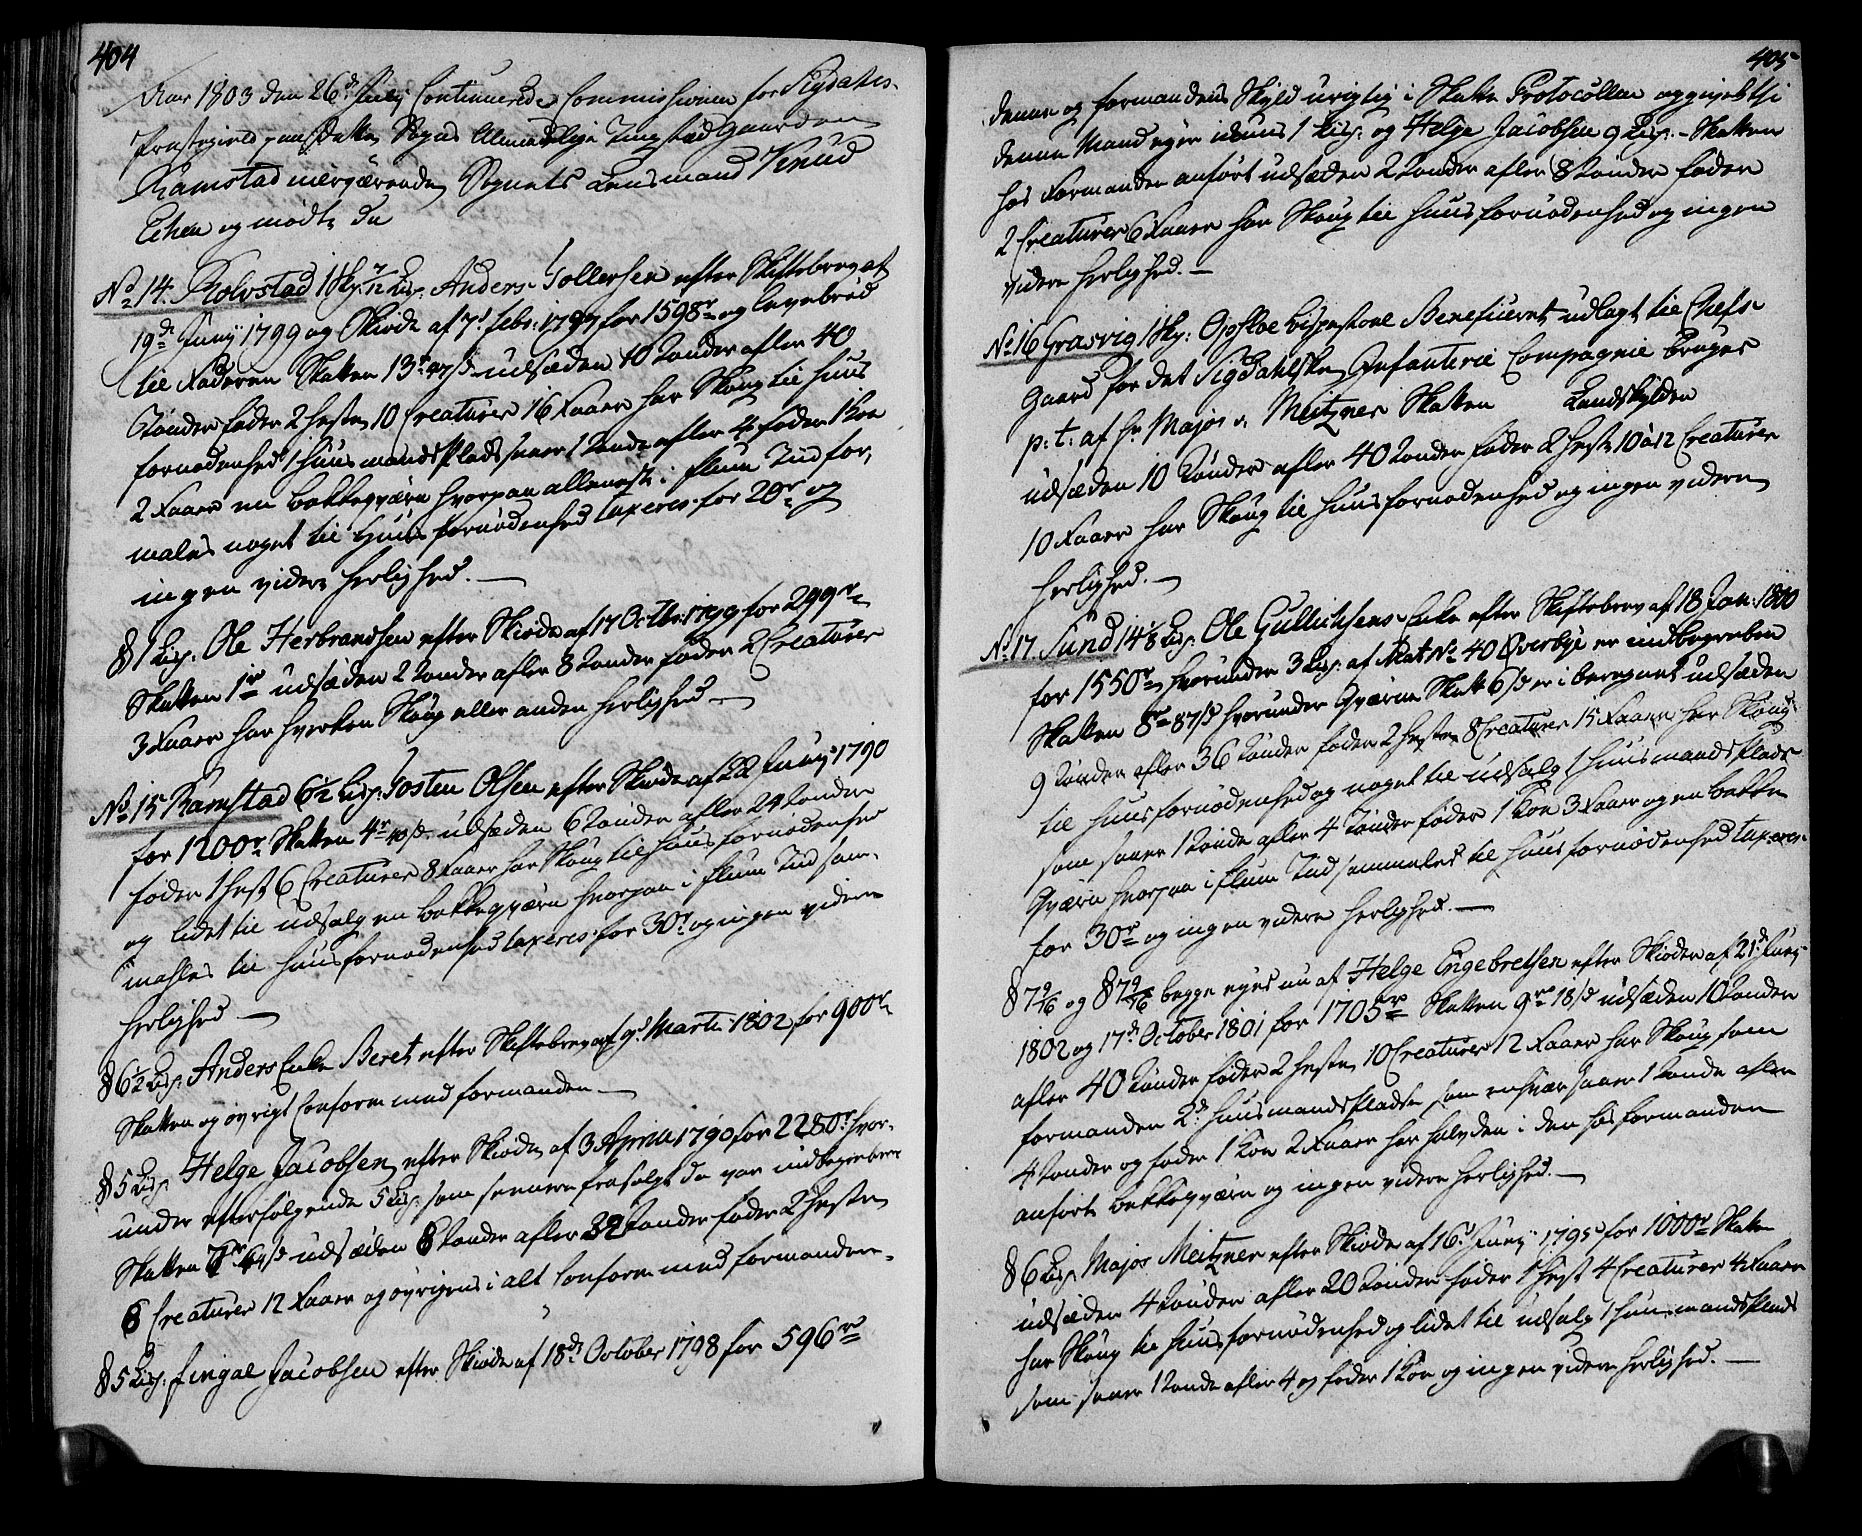 404
Aar 1803 den 26de Julij Continuerede Commissionen for Sigdahls
Præstegield paa Sædvahlig Sogns Almindelige Tingstæd Gaarden
Ramstad nærværende Sognets Lensmand Knud
Eken og mødte da
No 14. Kolvstad 1 Sk: 7½ Lisp: Anders Tollefsen efter Skiftebrev af
19de Junj 1799 og Skiøde af 7d Febr: 1797 for 1598r og Levebrød
til Faderen Skatten 13r 47s udsæden 10 Tønder afler 40
Tønder føder 2 heste 10 Creaturer 16 Faarer har Skoug til huus
fornødenhed 1 huusmandsplads saaer 1 Tønde afler 4 føder 1 Koe
2 Faarer en bekkeqværn hvorpaa alleneste i flum Tiid for,
males noget til huusfornødenhed taxeres for 20r og
ingen videre herlighed. —
§ 1 Lisp: Ole Herbrandsen efter Skiøde af 17 Octbr: 1799 for 299r
Skatten 1r udsæden 2 Tønder afler 8 Tønder føder 2 Creaturer
3 Faarer har hverken Skoug eller anden herlighed —
No 15 Ramstad 6½ Lisp: Josten Olsen efter Skiøde af 22 Junj 1790
for 1200r Skatten 4r 40s udsæden 6 Tønder afler 24 Tønder
føder 1 hest 6 Creaturer 8 Faarer har Skoug til huusfornødenhed
og lidet til udsalg en bekkeqværn hvorpaa i flum Tiid sam-
mahles til huusfornødenhed taxeres for 30r og ingen videre
herlighed —
§ 6½ Lisp: Anders Enke Beret efter Skiftebrev af 9d Marti 1802 for 900r
Skatten og øvrigt Conform med formanden —
§ 5 Lisp: Helge Jacobsen efter Skiøde af 3 April 1790 for 2280r hvor-
under efterfølgende 5 Lisp: som senere frasolgt da var indbegreben
Skatten 7r 64s udsæden 8 Tønder afler 32 Tønder føder 2 heste
8 Creaturer 12 Faarer og øvrigens i alt Conform med formanden-
§ 5 Lisp: Fingal Jacobsen efter Skiøde af 18de October 1798 for 596r
405
denne og formandens Skyld urigtig i Skatte Protocollen opgivet thi
denne Mand eyer ikkuns 1 Lisp: og Helge Jacobsen 9 Lisp: - Skatten
hos Formanden anført udsæden 2 Tønder afler 8 Tønder føder
2 Creaturer 6 Faarer har Skoug til huusfornødenhed og ingen
videre herlighed. —
No 16 Grasvig 1 Sk: Opsloe bispestoel Beneficeret udlagt til Chefs
Gaard for det Sigdahlske Infanterie Compagnie bruges
p: t: af hr Major v. Meitzner Skatten Landskylden
udsæden 10 Tønder afler 40 Tønder føder 2 heste 10 à 12 Creaturer
10 Faarer har Skoug til huusfornødenhed og ingen videre
herlighed. —
No 17. Sund 14⅛ Lisp: Ole Gullichsens Enke efter Skiftebrev af 18 Jan: 1800
for 1550r hvorunder 3 Lisp: af Mat No 40 Overbye er indbegreben
Skatten 8r 87s hvorunder Qværne Skatt 6s er i beregnet udsæden
9 Tønder afler 36 Tønder føder 2 heste 8 Creaturer 15 Faarer har Skoug
til huusfornødenhed og noget til udsalg 1 huusmandsplads
som saaer 1 Tønde afler 4 Tønder føder 1 Koe 3 Faarer og en bekke
Qværn hvorpaa i flum Tiid sammales til huusfornødenhed taxeres
for 30r og ingen videre herlighed. —
§ 7 9/16 og § 7 9/16 begge eyes nu af Helge Engebretsen efter Skiøder af 21d Junj
1802 og 17de October 1801 for 1705r Skatten 9r 18s udsæden 10 Tønder
afler 40 Tønder føder 2 heste 10 Creaturer 12 Faarer har Skoug som
formanden 2de huusmandspladse som enhvær saaer 1 Tønde afler
4 Tønder og føder 1 Koe 2 Faarer har halvden i den hos formanden
anførte bekkeqværn og ingen videre herlighed. —
§ 6 Lisp: Major Meitzner efter Skiøde af 16d Junj 1795 for 1000r Skatten
udsæden 4 Tønder afler 20 Tønder føder 1 hest 4 Creaturer 4 Faarer
har Skoug til huusfornødenhed og lidet til udsalg 1 huusmandsplads
som saaer 1 Tønde afler 4 og føder 1 Koe og ingen videre herlighed. —